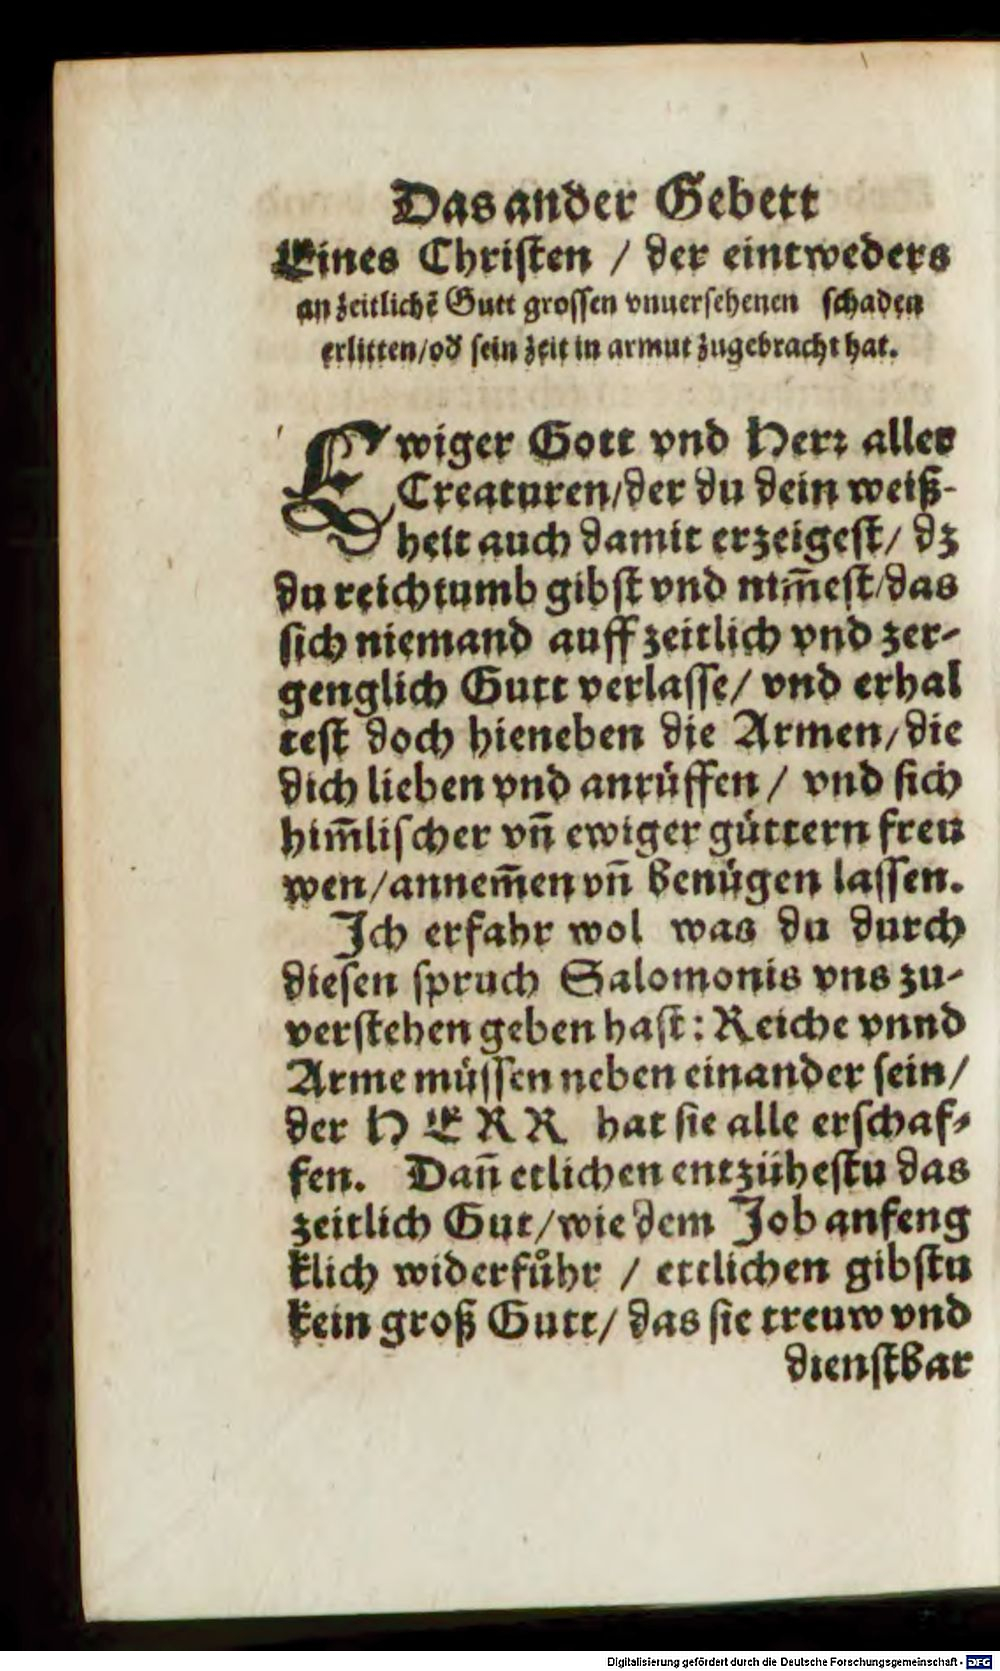 Das ander Gebett
Eines Christen / der eintweders
an zeitlichē Gutt grossen vnuersehenen schaden
erlitten/od̕ sein zeit in armut zugebracht hat.
Ewiger Gott vnd Herꝛ aller
Creaturen/der du dein weiß-
heit auch damit erzeigest/ dz
du reichtumb gibst vnd nim̄est/das
sich niemand auff zeitlich vnd zer-
genglich Gutt verlasse/ vnd erhal
test doch hieneben die Armen/die
dich lieben vnd anrüffen / vnd sich
him̄lischer vn̄ ewiger güttern freu
wen/annem̄en vn̄ benügen lassen.
Ich erfahr wol was du durch
diesen spruch Salomonis vns zu-
verstehen geben hast: Reiche vnnd
Arme müssen neben einander sein/
der HERR hat sie alle erschaf-
fen. Dan̄ etlichen entzühestu das
zeitlich Gut/wie dem Job anfeng
klich widerfůhr / ettlichen gibstu
kein groß Gutt/ das sie treuw vnd
dienstbar
Digitalisierung gefördert durch die Deutsche Forschungsgemeinschaft - DFG